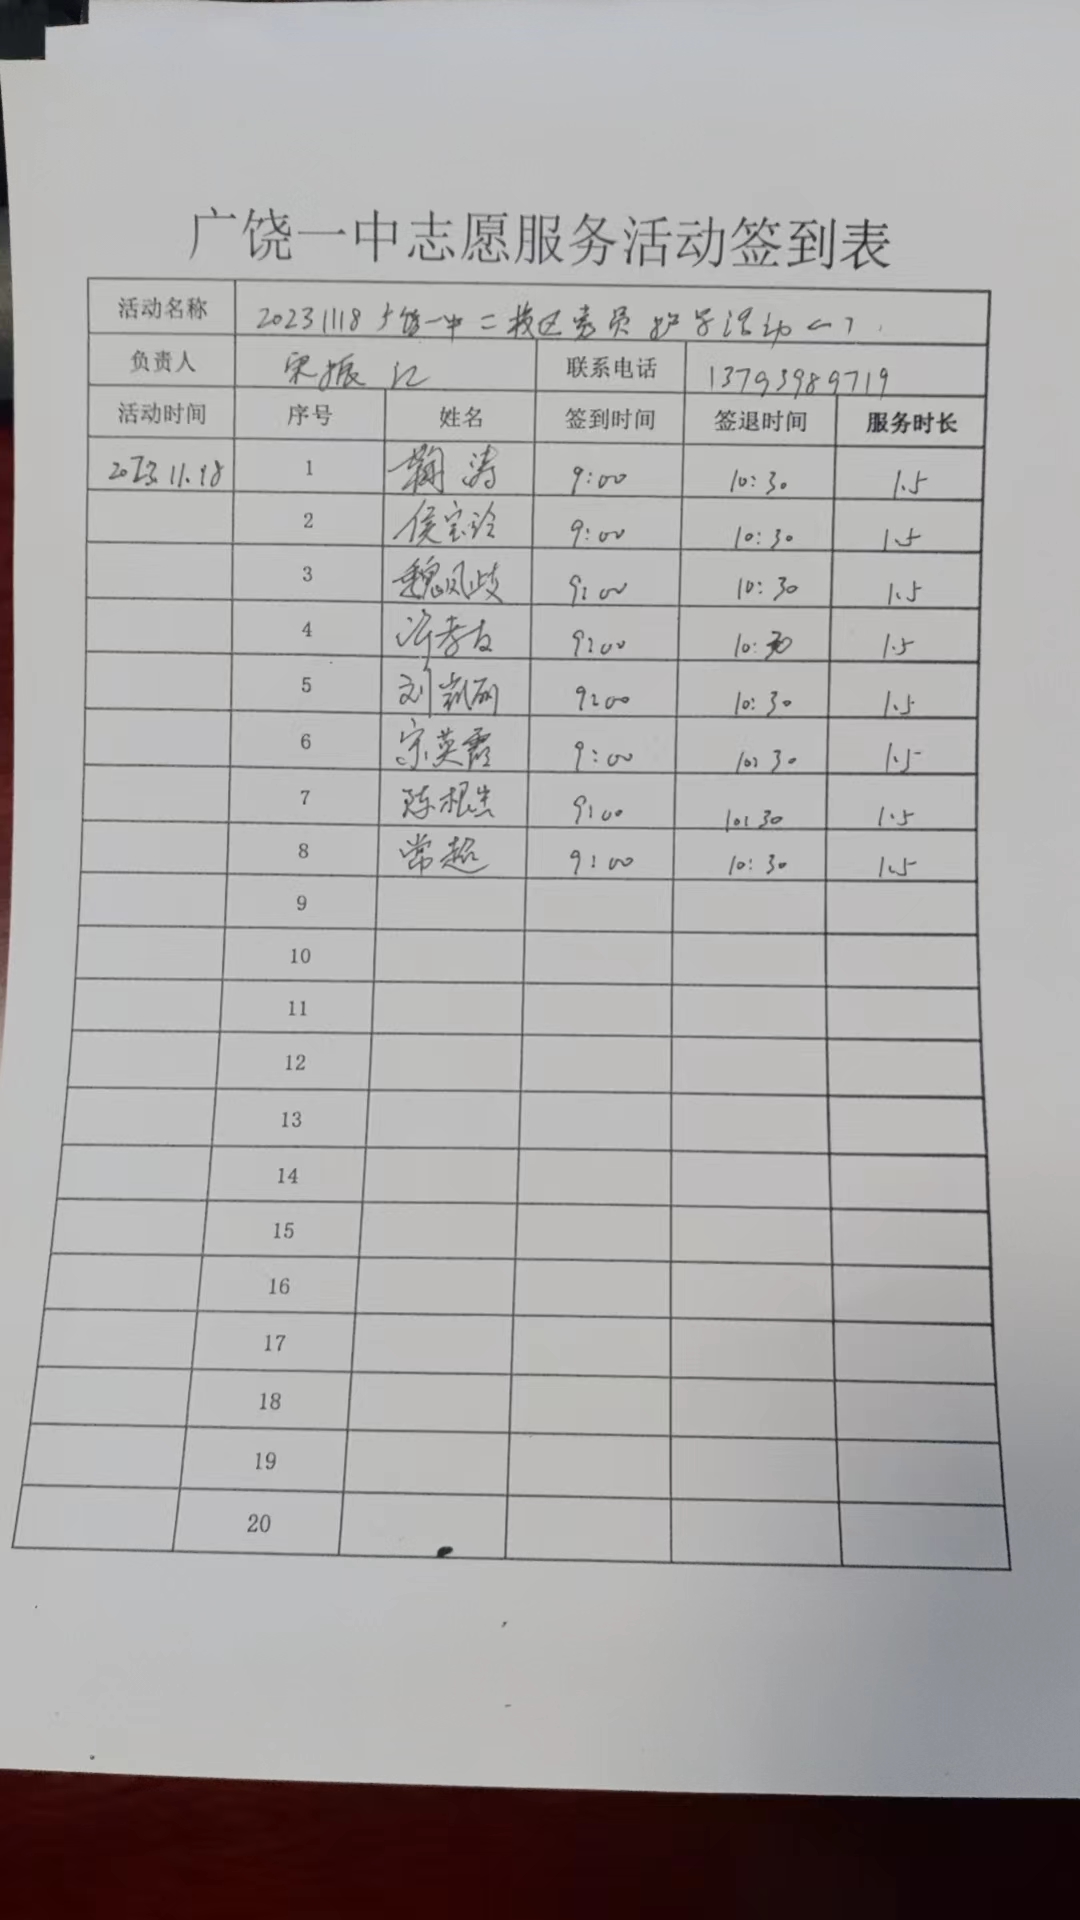 广饶一中志愿服务活动签到表
活动名称 20231118广饶一中二校区党员护学活动(一)
负责人 宋振江 联系电话 13793989719
活动时间 序号 姓名 签到时间 签退时间 服务时长
2023.11.18 1 鞠涛 9:00 10:30 1.5
2 侯宝玲 9:00 10:30 1.5
3 魏凤岐 9:00 10:30 1.5
4 孝友 9:00 10:30 1.5
5 刘凯丽 9:00 10:30 1.5
6 宗英霞 9:00 10:30 1.5
7 陈根生 9:00 10:30 1.5
8 常超 9:00 10:30 1.5
9
10
11
12
13
14
15
16
17
18
19
20